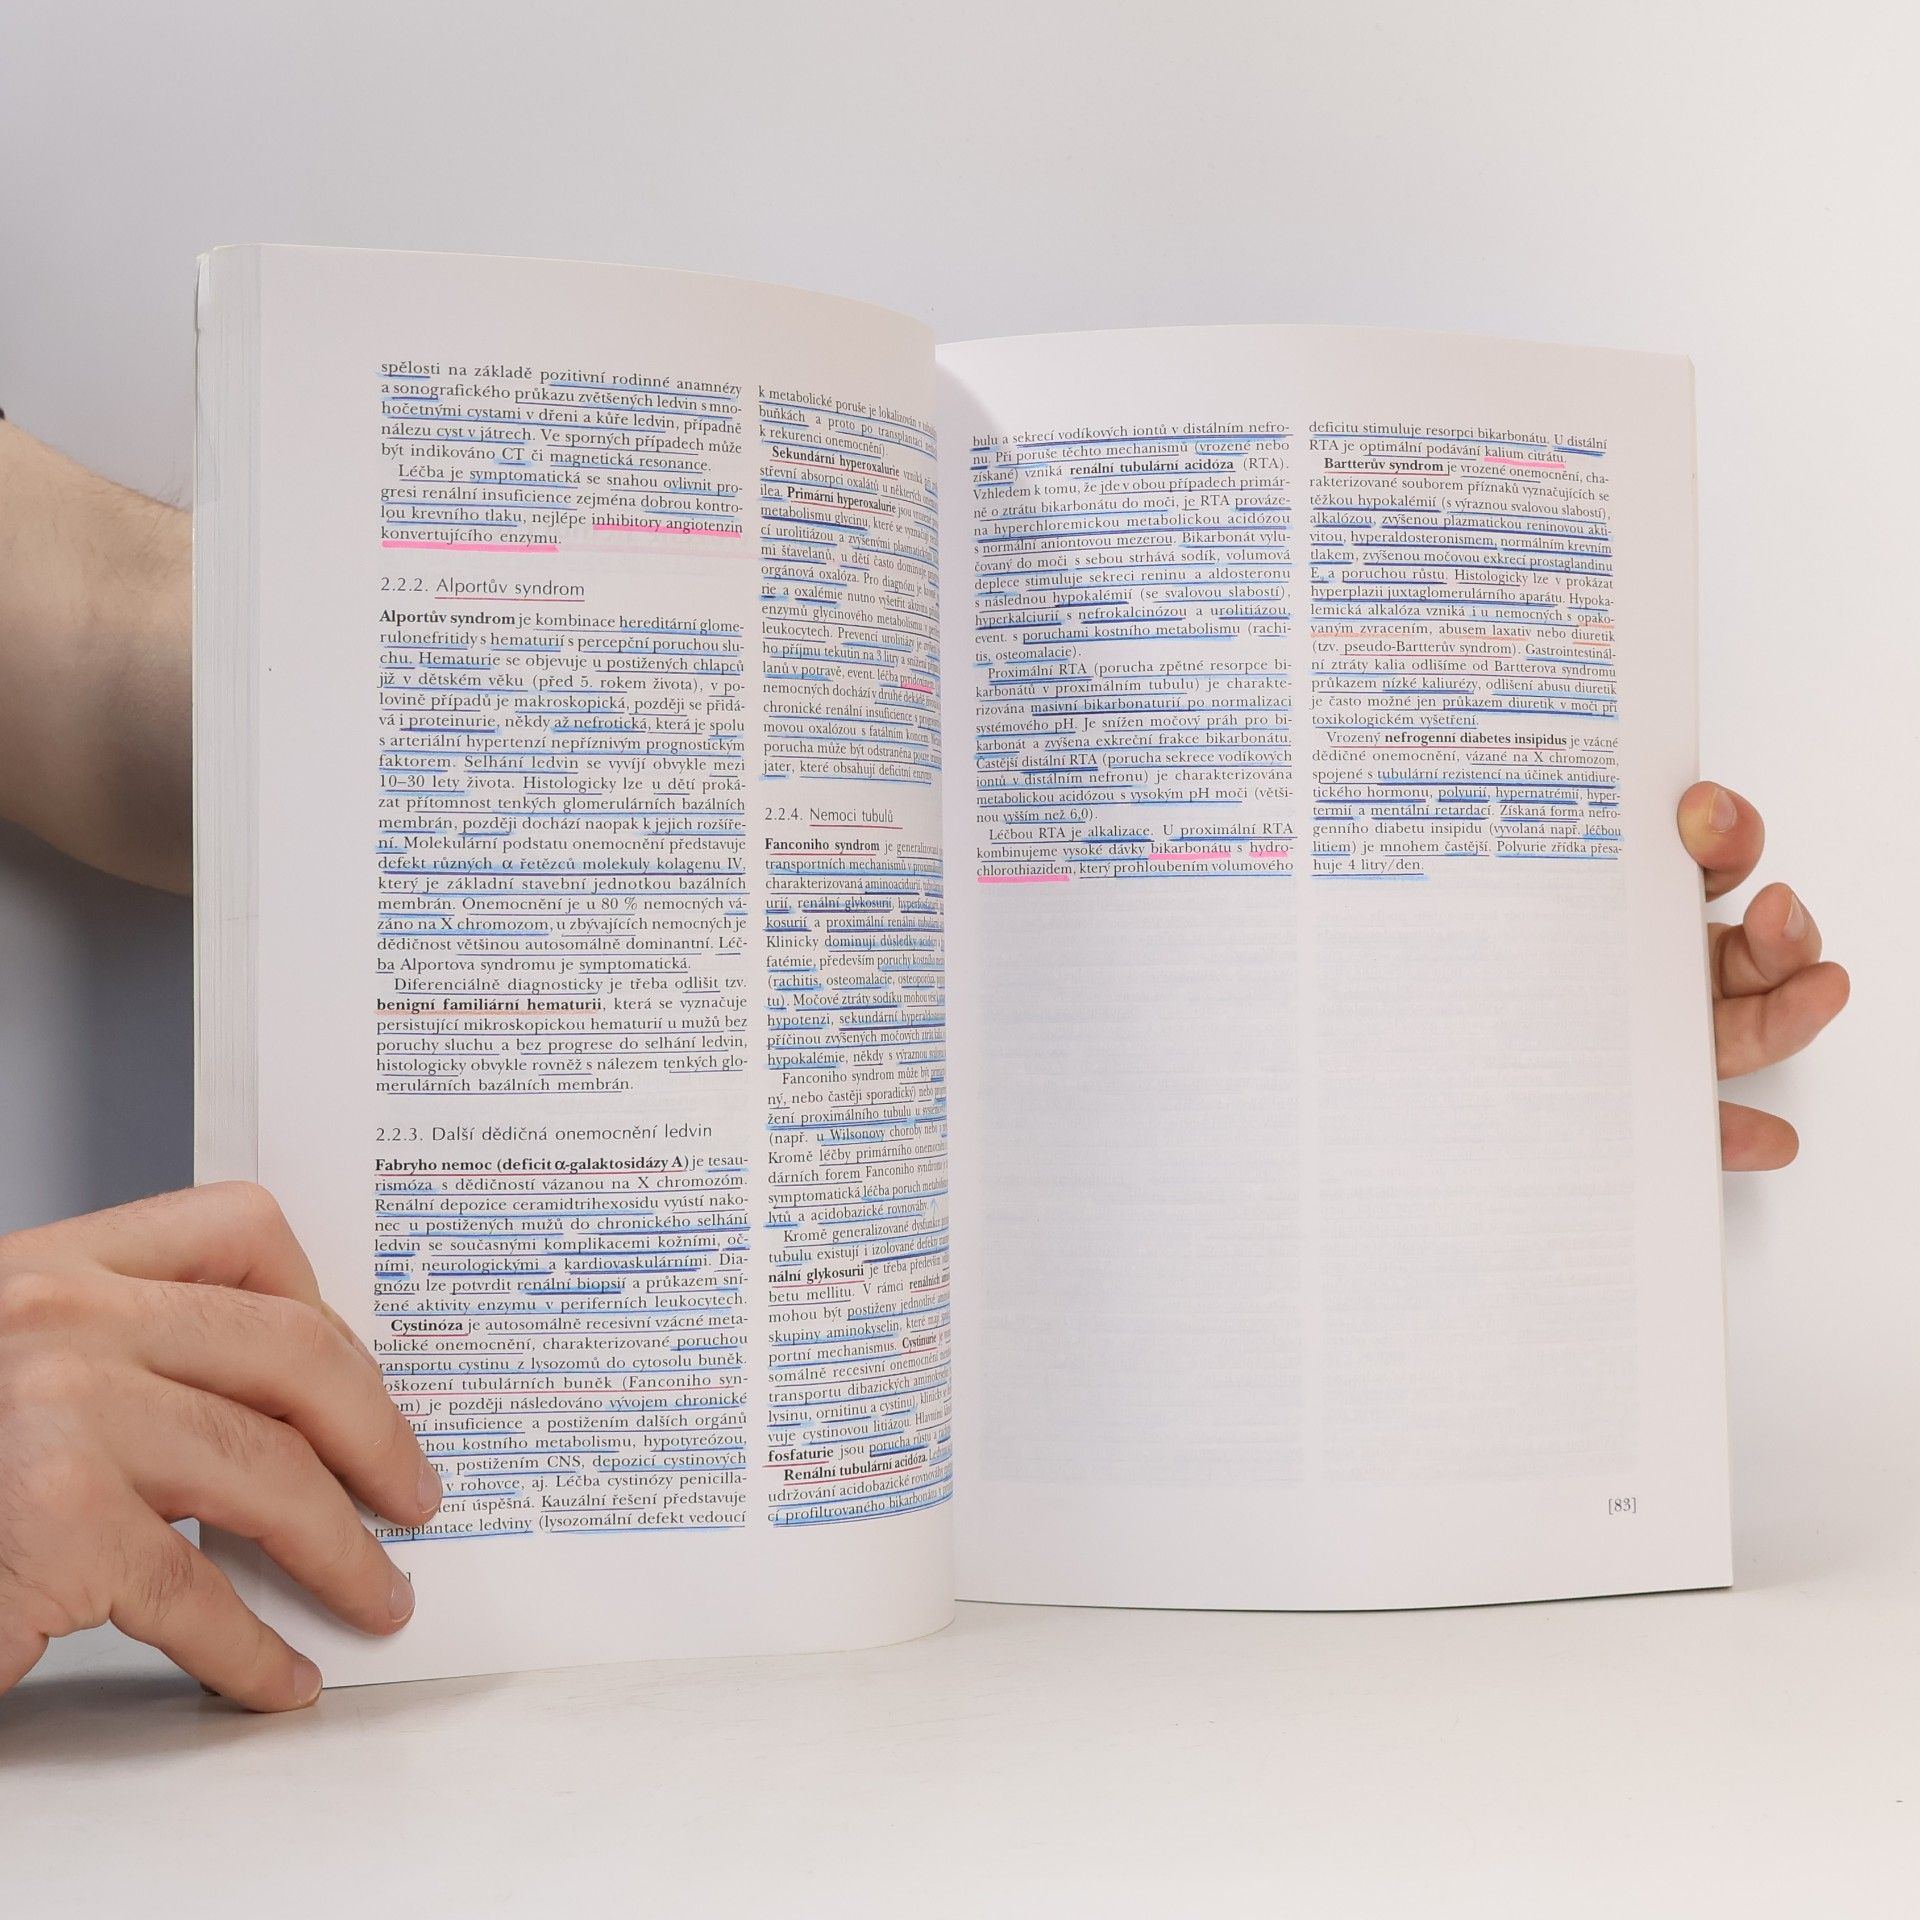 spělosti na základě pozitivní rodinné anamnézy
a sonografického průkazu zvětšených ledvin s mno-
hočetnými cystami v dřeni a kůře ledvin, případně
nálezu cyst v játrech. Ve sporných případech může
být indikováno CT či magnetická resonance.
Léčba je symptomatická se snahou ovlivnit pro-
gresi renální insuficience zejména dobrou kontro-
lou krevního tlaku, nejlépe inhibitory angiotenzin
konvertujícího enzymu.
2.2.2. Alportův syndrom
Alportův syndrom je kombinace hereditární glome-
rulonefritidy s hematurií s percepční poruchou slu-
chu. Hematurie se objevuje u postižených chlapců
již v dětském věku (před 5. rokem života), v po-
lovině případů je makroskopická, později se přidá-
vá i proteinurie, někdy až nefrotická, která je spolu
s arteriální hypertenzí nepříznivým prognostickým
faktorem. Selhání ledvin se vyvíjí obvykle mezi
10–30 lety života. Histologicky lze u dětí proká-
zat přítomnost tenkých glomerulárních bazálních
membrán, později dochází naopak k jejich rozšíře-
ní. Molekulární podstatu onemocnění představuje
defekt různých α řetězců molekuly kolagenu IV,
který je základní stavební jednotkou bazálních
membrán. Onemocnění je u 80 % nemocných vá-
záno na X chromozom, u zbývajících nemocných je
dědičnost většinou autosomálně dominantní. Léč-
ba Alportova syndromu je symptomatická.
Diferenciálně diagnosticky je třeba odlišit tzv.
benigní familiární hematurii, která se vyznačuje
persistující mikroskopickou hematurií u mužů bez
poruchy sluchu a bez progrese do selhání ledvin,
histologicky obvykle rovněž s nálezem tenkých glo-
merulárních bazálních membrán.
2.2.3. Další dědičná onemocnění ledvin
Fabryho nemoc (deficit α-galaktosidázy A) je tesau-
rismóza s dědičností vázanou na X chromozóm.
Renální depozice ceramidtrihexosidu vyústí nako-
nec u postižených mužů do chronického selhání
ledvin se současnými komplikacemi kožními, oč-
ními, neurologickými a kardiovaskulárními. Dia-
gnózu lze potvrdit renální biopsií a průkazem sní-
žené aktivity enzymu v periferních leukocytech.
Cystinóza je autosomálně recesivní vzácné meta-
bolické onemocnění, charakterizované poruchou
transportu cystinu z lysozomů do cytosolu buněk.
oškození tubulárních buněk (Fanconiho syn-
om) je později následováno vývojem chronické
ní insuficience a postižením dalších orgánů
chou kostního metabolismu, hypotyreózou,
postižením CNS, depozicí cystinových
v rohovce, aj. Léčba cystinózy penicilla-
ení úspěšná. Kauzální řešení představuje
transplantace ledviny (lysozomální defekt vedoucí
k metabolické poruše je lokalizován v
buňkách a proto po transplantaci
k rekurenci onemocnění).
Sekundární hyperoxalurie vzniká při
střevní absorpci oxalátů u některých
ilea. Primární hyperoxalurie jsou vrozené
metabolismu glycinu, které se vyznačují
cí urolitiázou a zvýšenými plasmatickými
mi šťavelanů, u dětí často dominuje
orgánová oxalóza. Pro diagnózu je kromě
rie a oxalémie nutno vyšetřit aktivitu
enzymů glycinového metabolismu v
leukocytech. Prevencí urolitiázy je
ho příjmu tekutin na 3 litry a snížení
lanů v potravě, event. léčba pyridoxinem.
nemocných dochází v druhé dekádě
chronické renální insuficience s
movou oxalózou s fatálním koncem.
porucha může být odstraněna pouze
jater, které obsahují deficitní enzym.
2.2.4. Nemoci tubulů
Fanconiho syndrom je generalizovaná
transportních mechanismů v proximálním
charakterizovaná aminoacidurií,
urií, renální glykosurií,
kosurií a proximální renální tubulární
Klinicky dominují důsledky acidózy
fatémie, především poruchy kostního
(rachitis, osteomalacie, osteoporóza,
tu). Močové ztráty sodíku mohou vést
hypotenzi, sekundární
příčinou zvýšených močových ztrát
hypokalémie, někdy s výraznou
Fanconiho syndrom může být
ný, nebo častěji sporadický) nebo
žení proximálního tubulu u
(např. u Wilsonovy choroby nebo
Kromě léčby primárního onemocnění
dárních forem Fanconiho syndromu
symptomatická léčba poruch
lytů a acidobazické rovnováhy
Kromě generalizované dysfunkce
tubulu existují i izolované defekty
nální glykosurii je třeba především
betu mellitu. V rámci renálních
mohou být postiženy jednotlivé
skupiny aminokyselin, které mají
portní mechanismus. Cystinurie je
somálně recesivní onemocnění
transportu dibazických aminokyselin
lysinu, ornitinu a cystinu), klinicky se
vuje cystinovou litiázou. Hlavními
fosfaturie jsou porucha růstu a
Renální tubulární acidóza.
udržování acidobazické rovnováhy
cí profiltrovaného bikarbonátu v
bulu a sekrecí vodíkových iontů v distálním nefro-
nu. Při poruše těchto mechanismů (vrozené nebo
získané) vzniká renální tubulární acidóza (RTA).
Vzhledem k tomu, že jde v obou případech primár-
ně o ztrátu bikarbonátu do moči, je RTA prováze-
na hyperchloremickou metabolickou acidózou
s normální aniontovou mezerou. Bikarbonát vylu-
čovaný do moči s sebou strhává sodík, volumová
deplece stimuluje sekreci reninu a aldosteronu
s následnou hypokalémií (se svalovou slabostí),
hyperkalciurií s nefrokalcinózou a urolitiázou,
event. s poruchami kostního metabolismu (rachi-
tis, osteomalacie).
Proximální RTA (porucha zpětné resorpce bi-
karbonátů v proximálním tubulu) je charakte-
rizována masivní bikarbonaturií po normalizaci
systémového pH. Je snížen močový práh pro bi-
karbonát a zvýšena exkreční frakce bikarbonátu.
Častější distální RTA (porucha sekrece vodíkových
iontů v distálním nefronu) je charakterizována
metabolickou acidózou s vysokým pH moči (větši-
nou vyšším než 6,0).
Léčbou RTA je alkalizace. U proximální RTA
kombinujeme vysoké dávky bikarbonátu s hydro-
chlorothiazidem, který prohloubením volumového
deficitu stimuluje resorpci bikarbonátu. U distální
RTA je optimální podávání kalium citrátu.
Bartterův syndrom je vrozené onemocnění, cha-
rakterizované souborem příznaků vyznačujících se
těžkou hypokalémií (s výraznou svalovou slabostí),
alkalózou, zvýšenou plazmatickou reninovou akti-
vitou, hyperaldosteronismem, normálním krevním
tlakem, zvýšenou močovou exkrecí prostaglandinu
E₂ a poruchou růstu. Histologicky lze v prokázat
hyperplazii juxtaglomerulárního aparátu. Hypoka-
lemická alkalóza vzniká i u nemocných s opako-
vaným zvracením, abusem laxativ nebo diuretik
(tzv. pseudo-Bartterův syndrom). Gastrointestinál-
ní ztráty kalia odlišíme od Bartterova syndromu
průkazem nízké kaliurézy, odlišení abusu diuretik
je často možné jen průkazem diuretik v moči při
toxikologickém vyšetření.
Vrozený nefrogenní diabetes insipidus je vzácné
dědičné onemocnění, vázané na X chromozom,
spojené s tubulární rezistencí na účinek antidiure-
tického hormonu, polyurií, hypernatrémií, hyper-
termií a mentální retardací. Získaná forma nefro-
genního diabetu insipidu (vyvolaná např. léčbou
litiem) je mnohem častější. Polyurie zřídka přesa-
huje 4 litry/den.
[83]